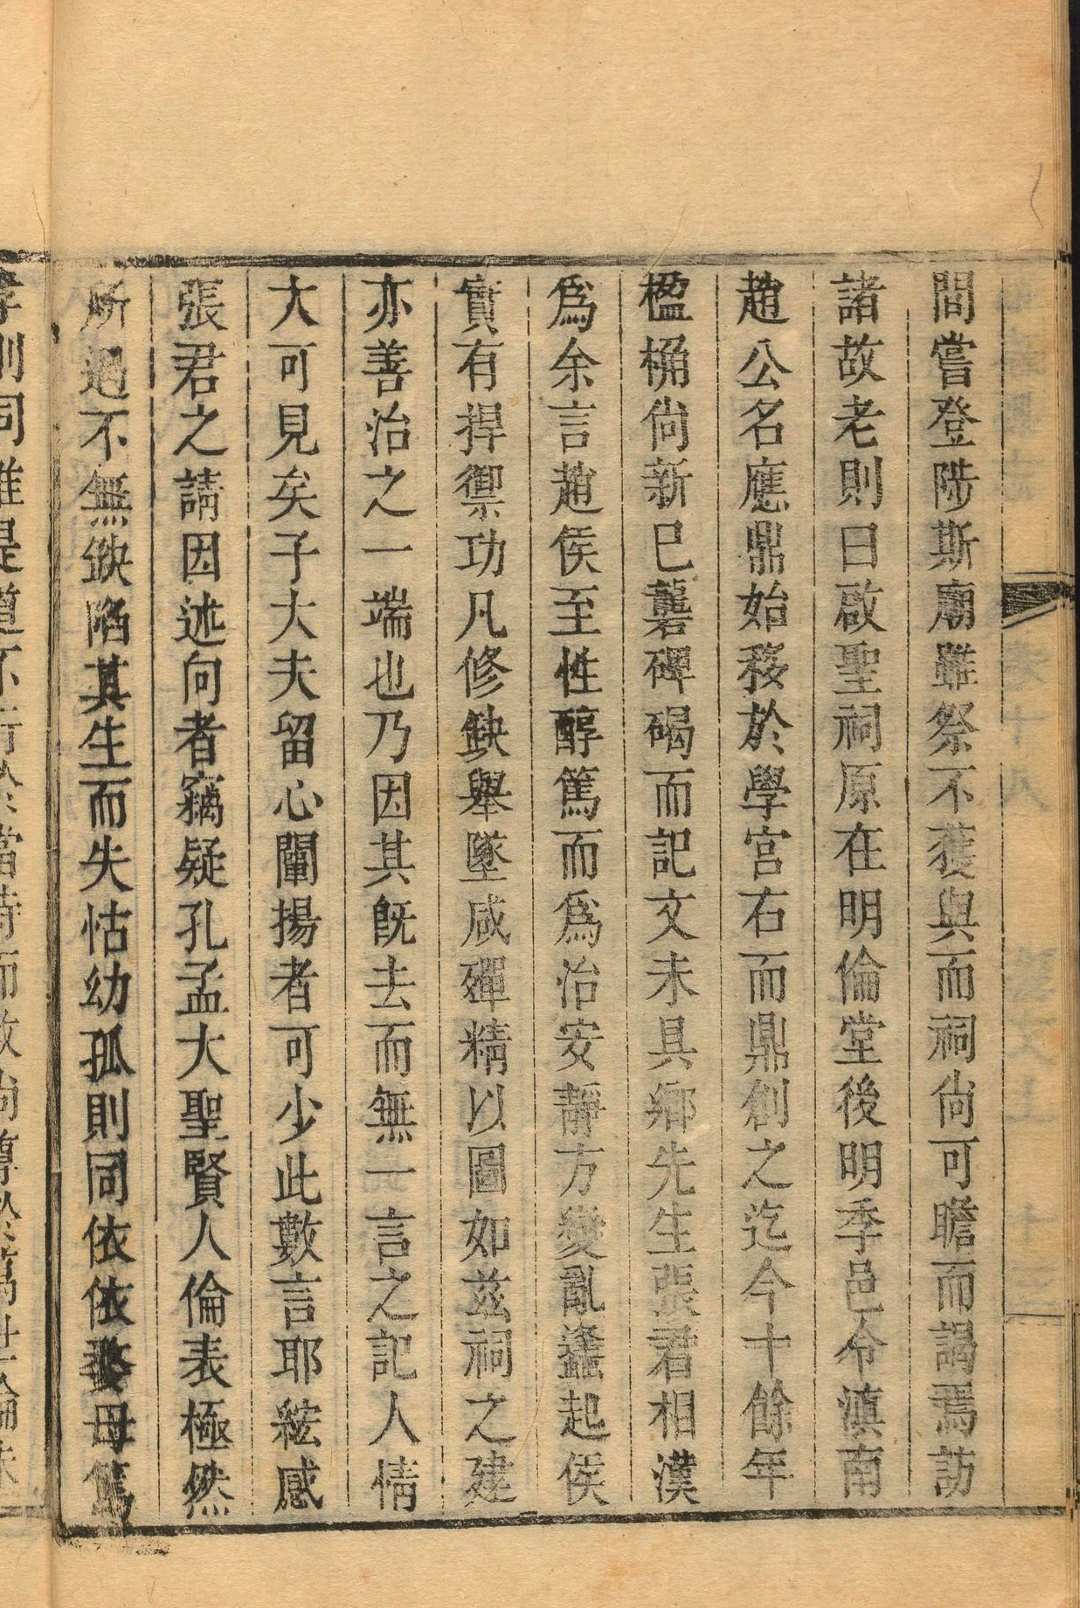 問嘗登陟斯廟雖祭不獲與而祠尙可瞻而謁焉訪
諸故老則曰啟聖祠原在明倫堂後明季邑令滇南
趙公名應鼎始移於學宮右而鼎創之迄今十餘年
楹桷尙新已礱碑碣而記文未具鄉先生張君相漢
爲余言趙侯至性醇篤而爲治安靜方變亂蠭起侯
實有捍禦功凡修缺舉墜咸殫精以圖如兹祠之建
亦善治之一端也乃因其旣去而無一言之記人情
大可見矣子大夫留心闡揚者可少此數言耶絃感
張君之請因述向者竊疑孔孟大聖賢人倫表極然
所遇不無缺陷其生而失怙幼孤則同依依嫠母篤